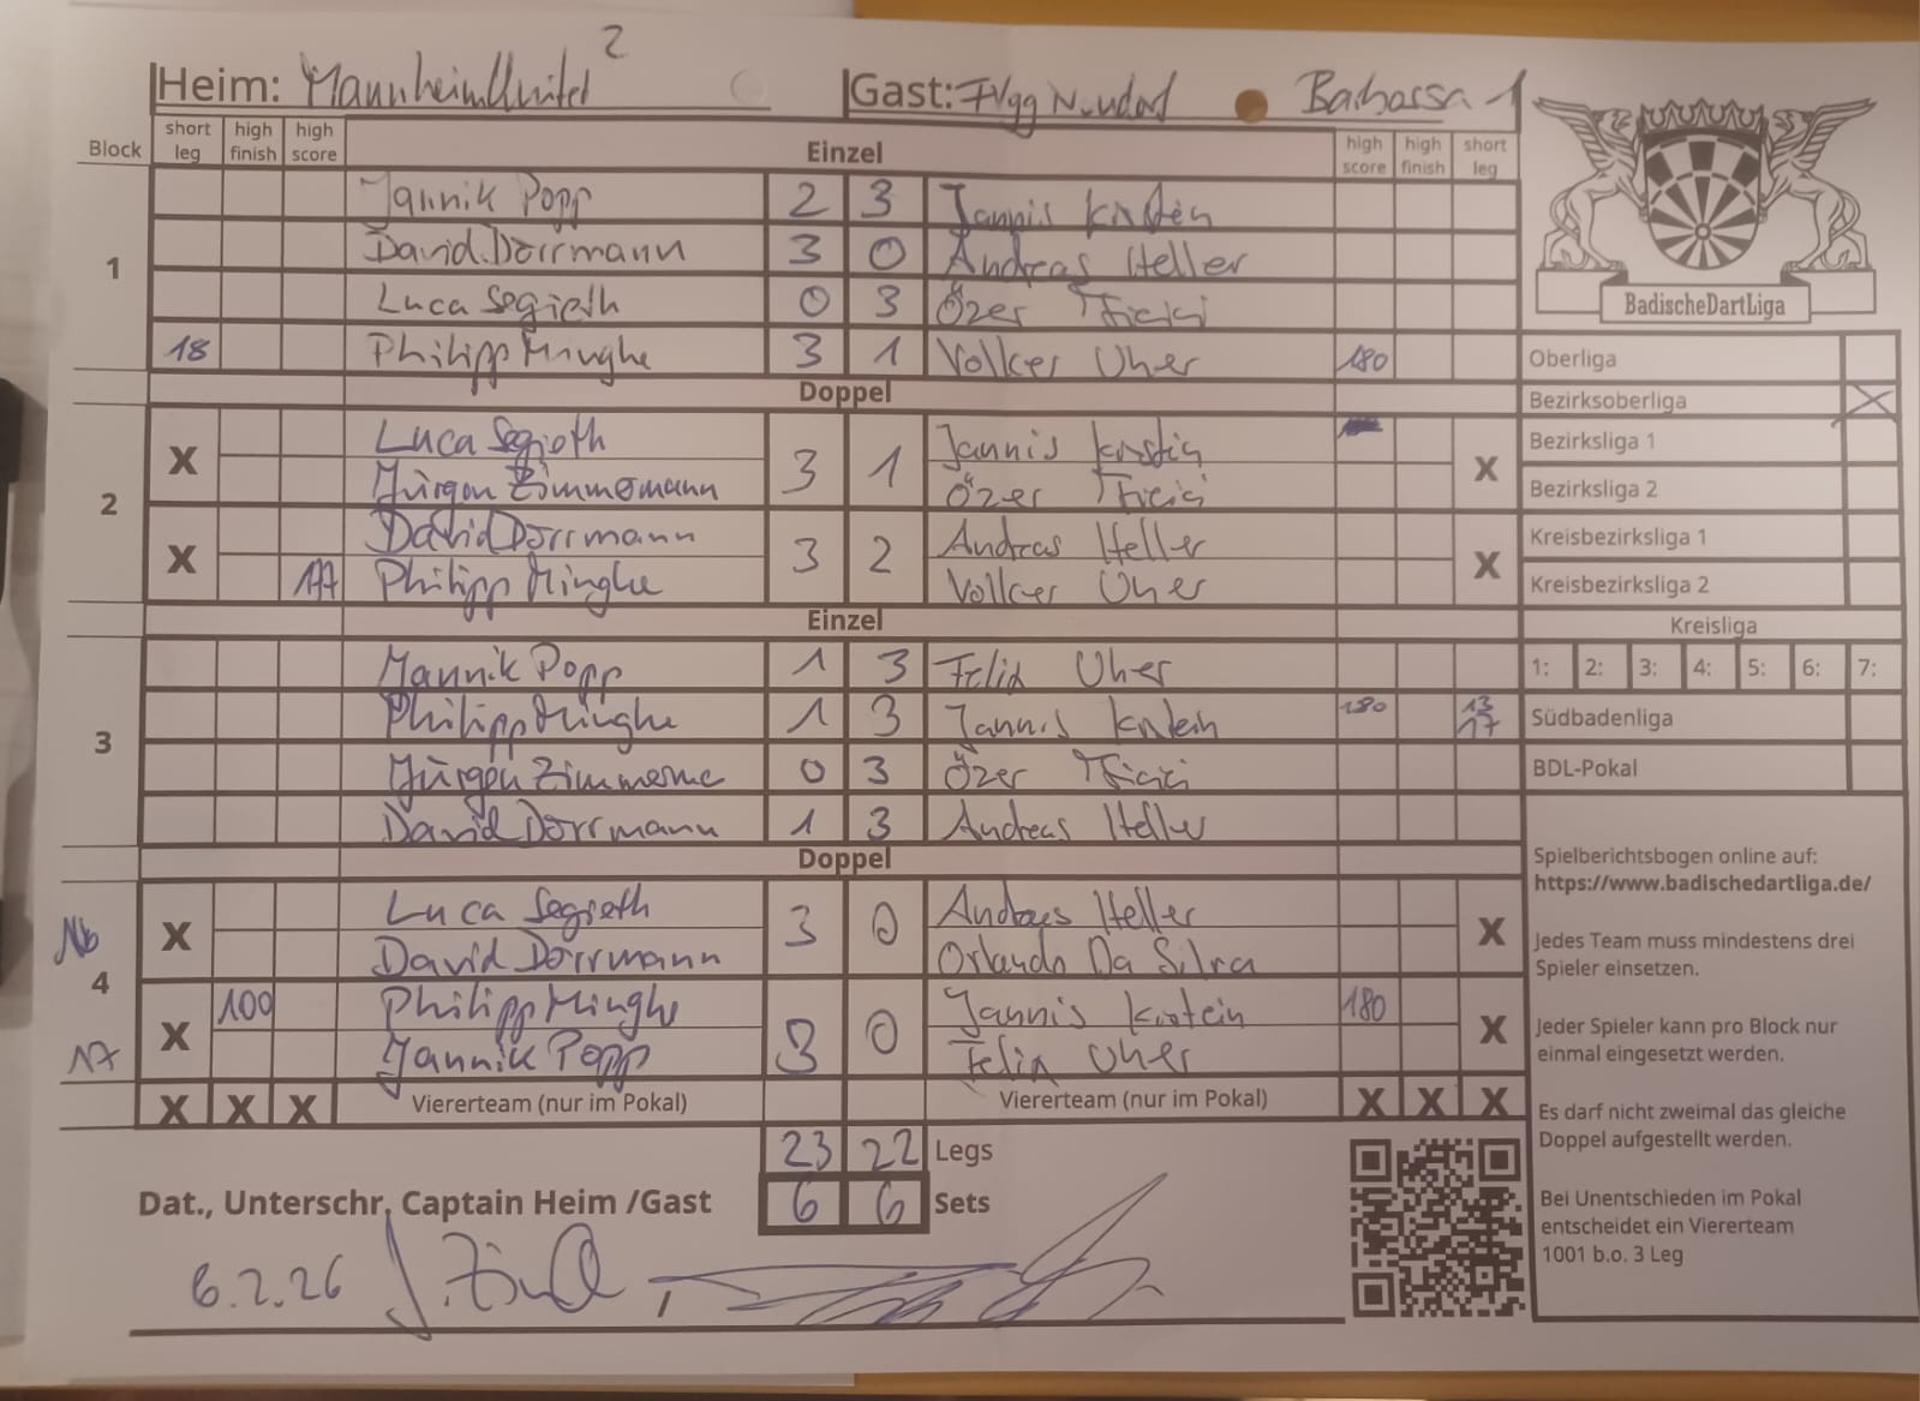 Heim: Mannheim United 2
Gast: FVgg Neudorf Barbarossa 1
Block short leg high finish high score Einzel high score high finish short leg
1
Jannik Popp 2 3 Jannis
David Dörrmann 3 0 Andreas Heller
Luca Segieth 0 3 Özer
18 Philipp Minghe 3 1 Volker Uher 180
Doppel
2
X Luca Segieth 3 1 Jannis X
Jürgen Özer
X David Dörrmann 3 2 Andreas Heller X
177 Philipp Minghe Volker Uher
Einzel
3
Jannik Popp 1 3 Felix Uher
Philipp Minghe 1 3 Jannis 180 13 17
Jürgen 0 3 Özer
David Dörrmann 1 3 Andreas Heller
Doppel
4
X Luca Segieth 3 0 Andreas Heller X
David Dörrmann Orlando Da Silva
17 X 100 Philipp Minghe 3 0 Jannis 180 X
Jannik Popp Felix Uher
X X X Viererteam (nur im Pokal) Viererteam (nur im Pokal) X X X
23 22 Legs
6 6 Sets
Dat., Unterschr. Captain Heim /Gast
6.2.26 /
BadischeDartLiga
Oberliga
Bezirksoberliga X
Bezirksliga 1
Bezirksliga 2
Kreisbezirksliga 1
Kreisbezirksliga 2
Kreisliga
1: 2: 3: 4: 5: 6: 7:
Südbadenliga
BDL-Pokal
Spielberichtsbogen online auf:
https://www.badischedartliga.de/
Jedes Team muss mindestens drei
Spieler einsetzen.
Jeder Spieler kann pro Block nur
einmal eingesetzt werden.
Es darf nicht zweimal das gleiche
Doppel aufgestellt werden.
Bei Unentschieden im Pokal
entscheidet ein Viererteam
1001 b.o. 3 Leg